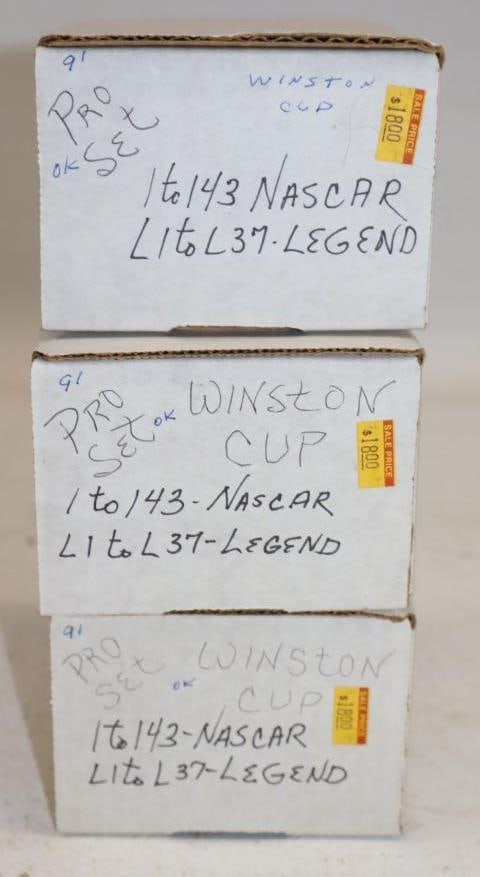 91
PRO SET
OK
WINSTON
CUP
SALE PRICE
$1800
1 to 143 NASCAR
L1 to L37-LEGEND
91
PRO SET
OK
WINSTON
CUP
SALE PRICE
$1800
1 to 143-NASCAR
L1 to L37-LEGEND
91
PRO SET
OK
WINSTON
CUP
SALE PRICE
$1800
1 to 143-NASCAR
L1 to L37-LEGEND